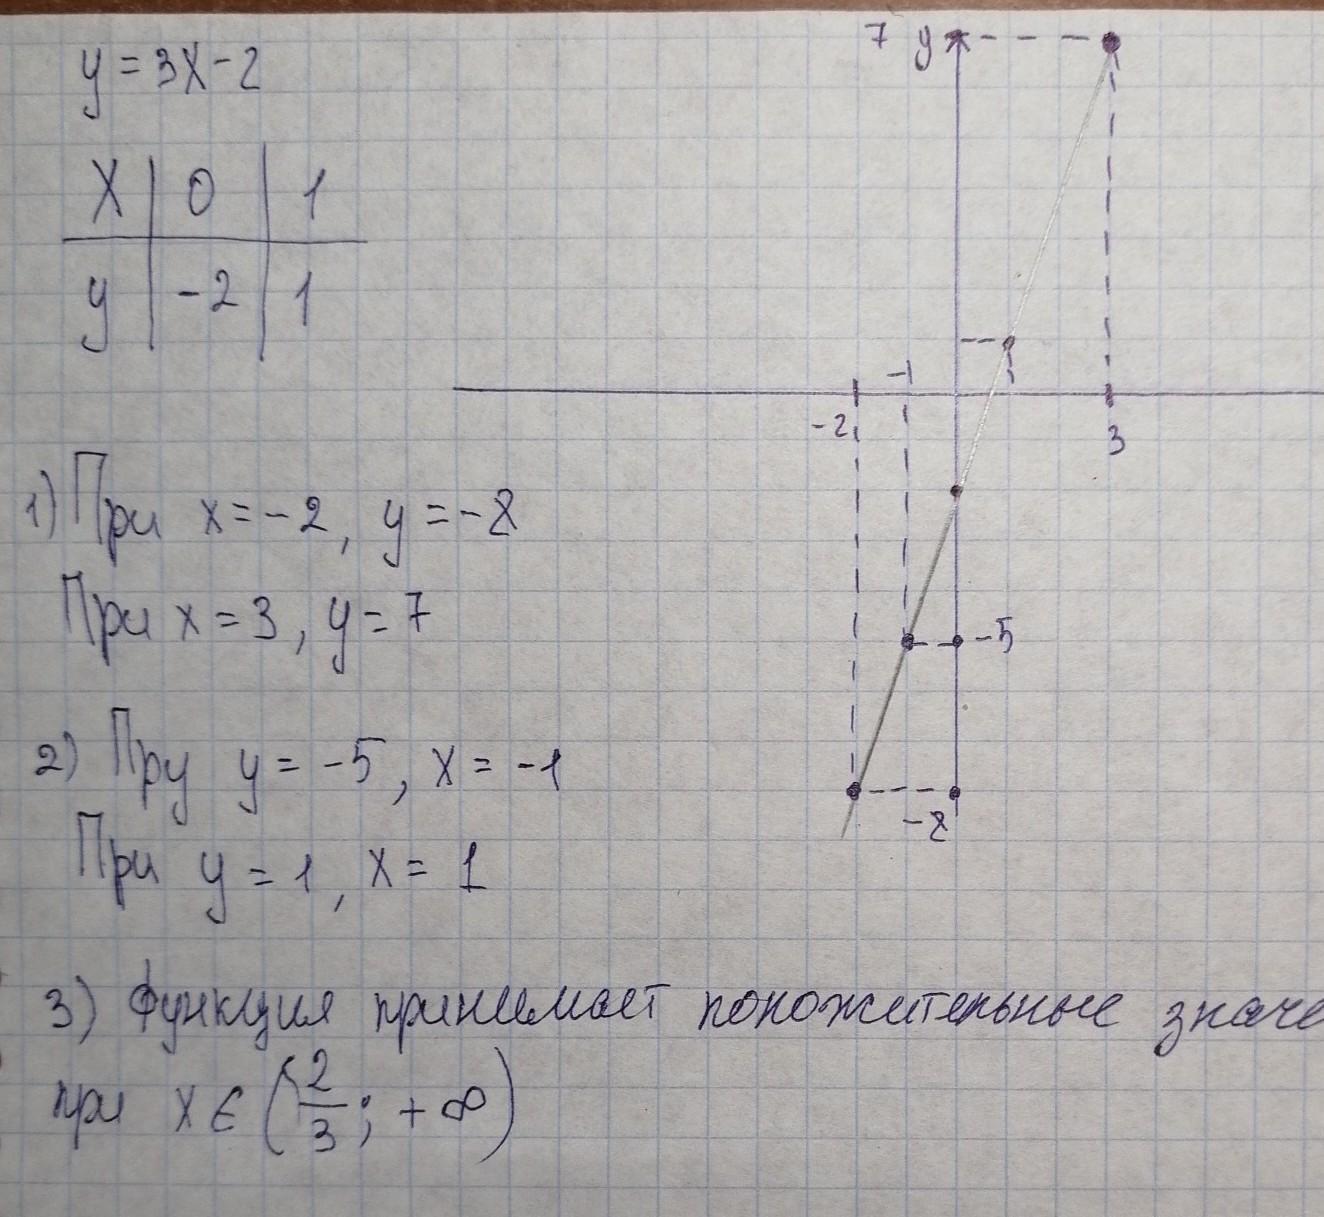 y = 3x - 2
x | 0 | 1
y | -2 | 1
1) При x = -2, y = -8
При x = 3, y = 7
2) Пру y = -5, x = -1
При y = 1, x = 1
3) Функция принимает положительные значе
при x ∈ (2/3; +∞)
7 y
-1
-2
3
-5
-8